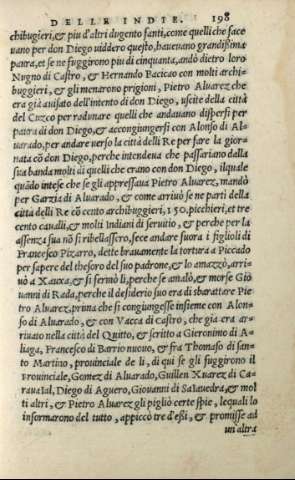 DELLE INDIE. 198
chibugieri, & piu d'altri dugento santi, come quelli che face
uano per don Diego uiddero questo, haueuano grandissima
paura, et se ne fuggirono piu di cinquanta, andò dietro loro
Nugno di Castro, & Hernando Bacicao con molti archi-
buggieri, & gli menarono prigioni, Pietro Aluarez che
era già auisato dell'intento di don Diego, uscite della città
del Cuzco per radunare quelli che andauano dispersi per
paura di don Diego, & accongiungersi con Alonso di Al-
uarado, per andare verso la città delli Re per fare la gior-
nata cō don Diego, perche intendeua che passariano dalla
sua banda molti di quelli che erano con don Diego, ilquale
quādo intese che se gli appressaua Pietro Aluarez, mandò
per Garzia di Aluarado, & come arriuò se ne parti della
città delli Re cō cento archibuggieri, 150. picchieri, et tre
cento caualli, & molti Indiani di seruitio, & perche per la
assenza sua nō si ribellassero, fece andare fuora i figlioli di
Francesco Pizarro, dette brauamente la tortura a Piccado
per sapere del thesoro del suo padrone, & lo amazzò, arri-
uò a Xauxa, & si fermò lì, perche se amalò, & morse Gio
uanni di Rada, perche il desiderio suo era di sbarattare Pie
tro Aluarez, prima che si congiungesse insieme con Alon-
so di Aluarado, & con Vacca di Castro, che gia era ar-
riuato nella città del Quito, & scritto a Gieronimo di A-
liaga, Francesco di Barrio nuouo, & fra Thomaso di san-
to Martino, prouinciale de lì, di qui se gli fuggirono il
Prouinciale, Gomez di Aluarado, Guillen Xuarez di Ca-
rauaial, Diego di Aguero, Giouanni di Saiauedra, & mol
ti altri, & Pietro Aluarez gli pigliò certe spie, lequali lo
informarono del tutto, appiccò tre d'essi, & promisse ad
un altra